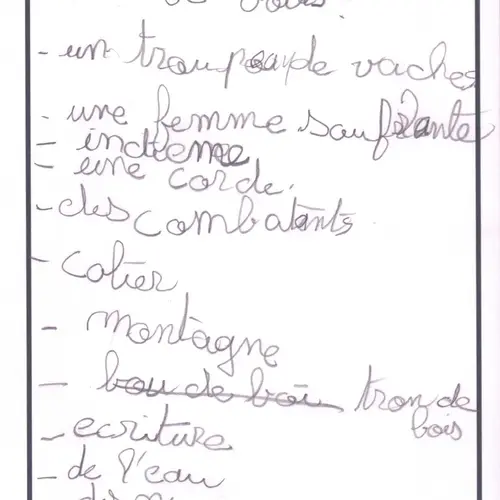 - un troupeau de vaches
- une femme soufrante
- indienne
- une corde.
- des combatants
- colier
- montagne
- bou de boi tron de bois
- ecriture
- de l'eau